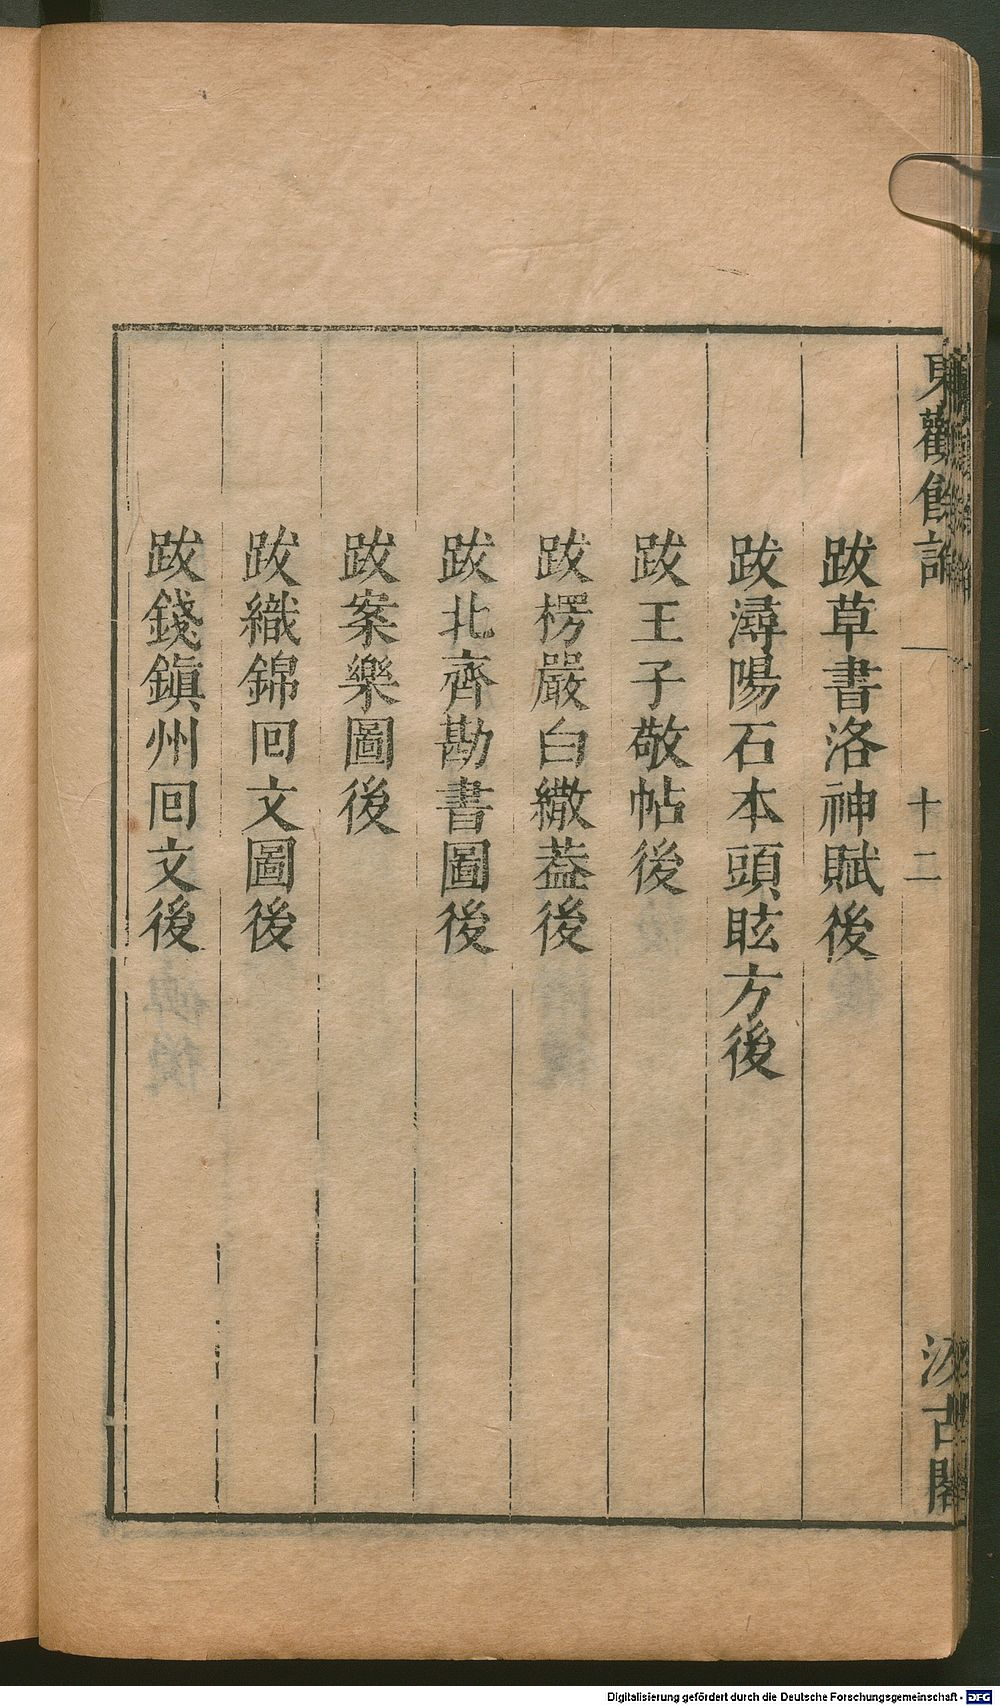 東觀餘論
十二
汲古閣
跋草書洛神賦後
跋潯陽石本頭眩方後
跋王子敬帖後
跋楞嚴白繖葢後
跋北齊勘書圖後
跋案樂圖後
跋織錦囘文圖後
跋錢鎭州囘文後
Digitalisierung gefördert durch die Deutsche Forschungsgemeinschaft - DFG